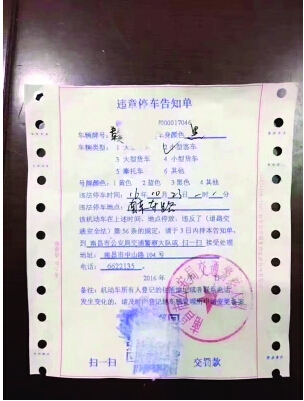 违章停车告知单
00017046
车辆牌号: 车身颜色 黑
车辆类型: 1 大 客车
3 大型货车 4 小型货车
5 摩托车 6 其他
号牌颜色 1 黄色 2 蓝色 3 黑色 4 其他
违法停车时间: 16 年 10 月 25 日 时 分
违法停车地点:
该机动车在上述时间、地点停放,违反了《道路交
通安全法》第 56 条的规定,请于 3 日内持本告知单,
到 南昌市公安局交通警察大队 接受处理
地址: 南昌市中山路 104 号
电话: 6622135
2016 年
备注: 机动车所有人登记的住所地址或者联系电话
发生变化的,请及时向登记地车辆管理所申请变更备案
扫一扫 交罚款